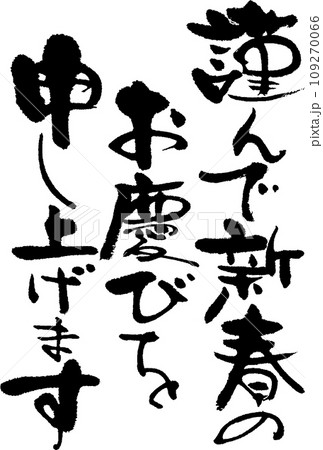 謹んで新春の
お慶びを
申し上げます
PIXTA
109270066